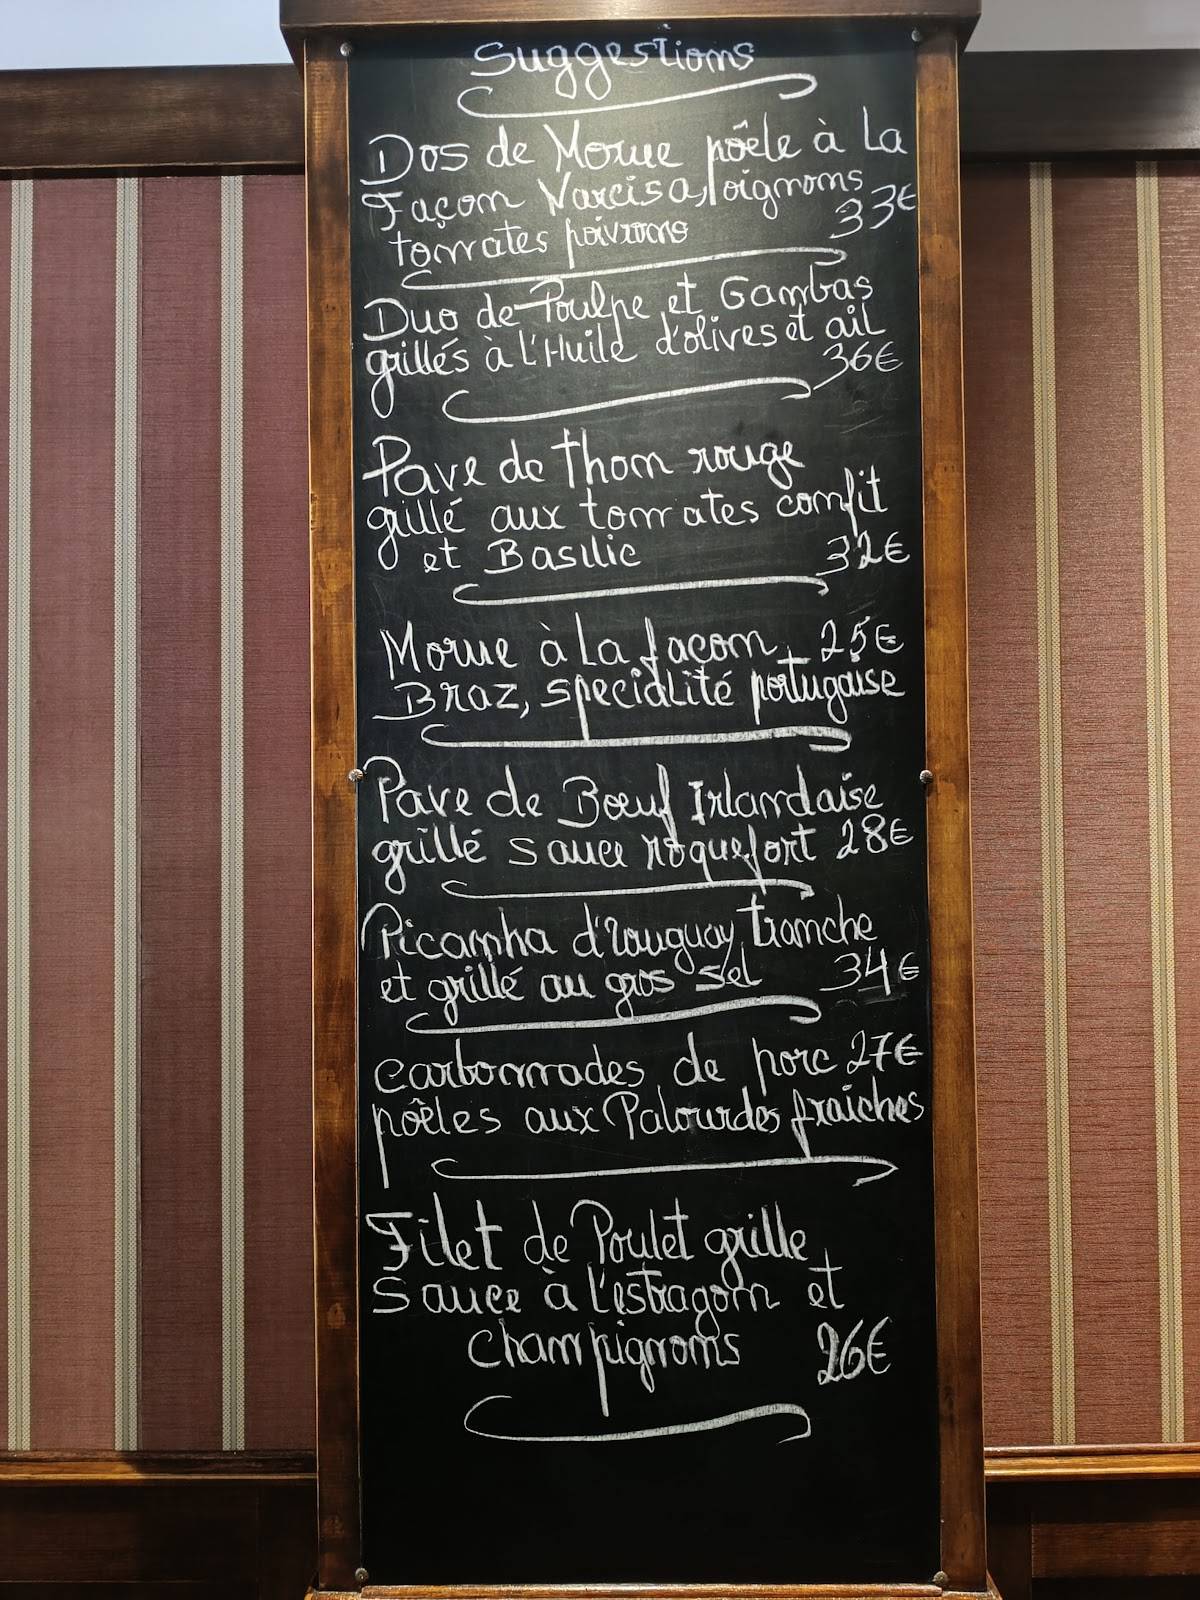 Suggestions
Dos de Morue pôele à La
Façon Narcisa, oignons
tomates poivrons 33€
Duo de Poulpe et Gambas
grillés à L'Huile d'olives et ail
36€
Pave de thon rouge
grillé aux tomates confit
et Basilic 32€
Morue à La façon 25€
Braz, specialité portugaise
Pave de Bœuf Irlandaise
grillé sauce roquefort 28€
Picanha d'Uruguay tranche
et grillé au gros sel 34€
carbonnades de porc 27€
pôêles aux Palourdes fraiches
Filet de Poulet grille
sauce à l'estragon et
champignons 26€